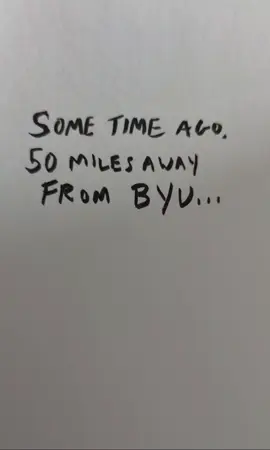 SOME TIME AGO.
50 MILES AWAY
FROM BYU...